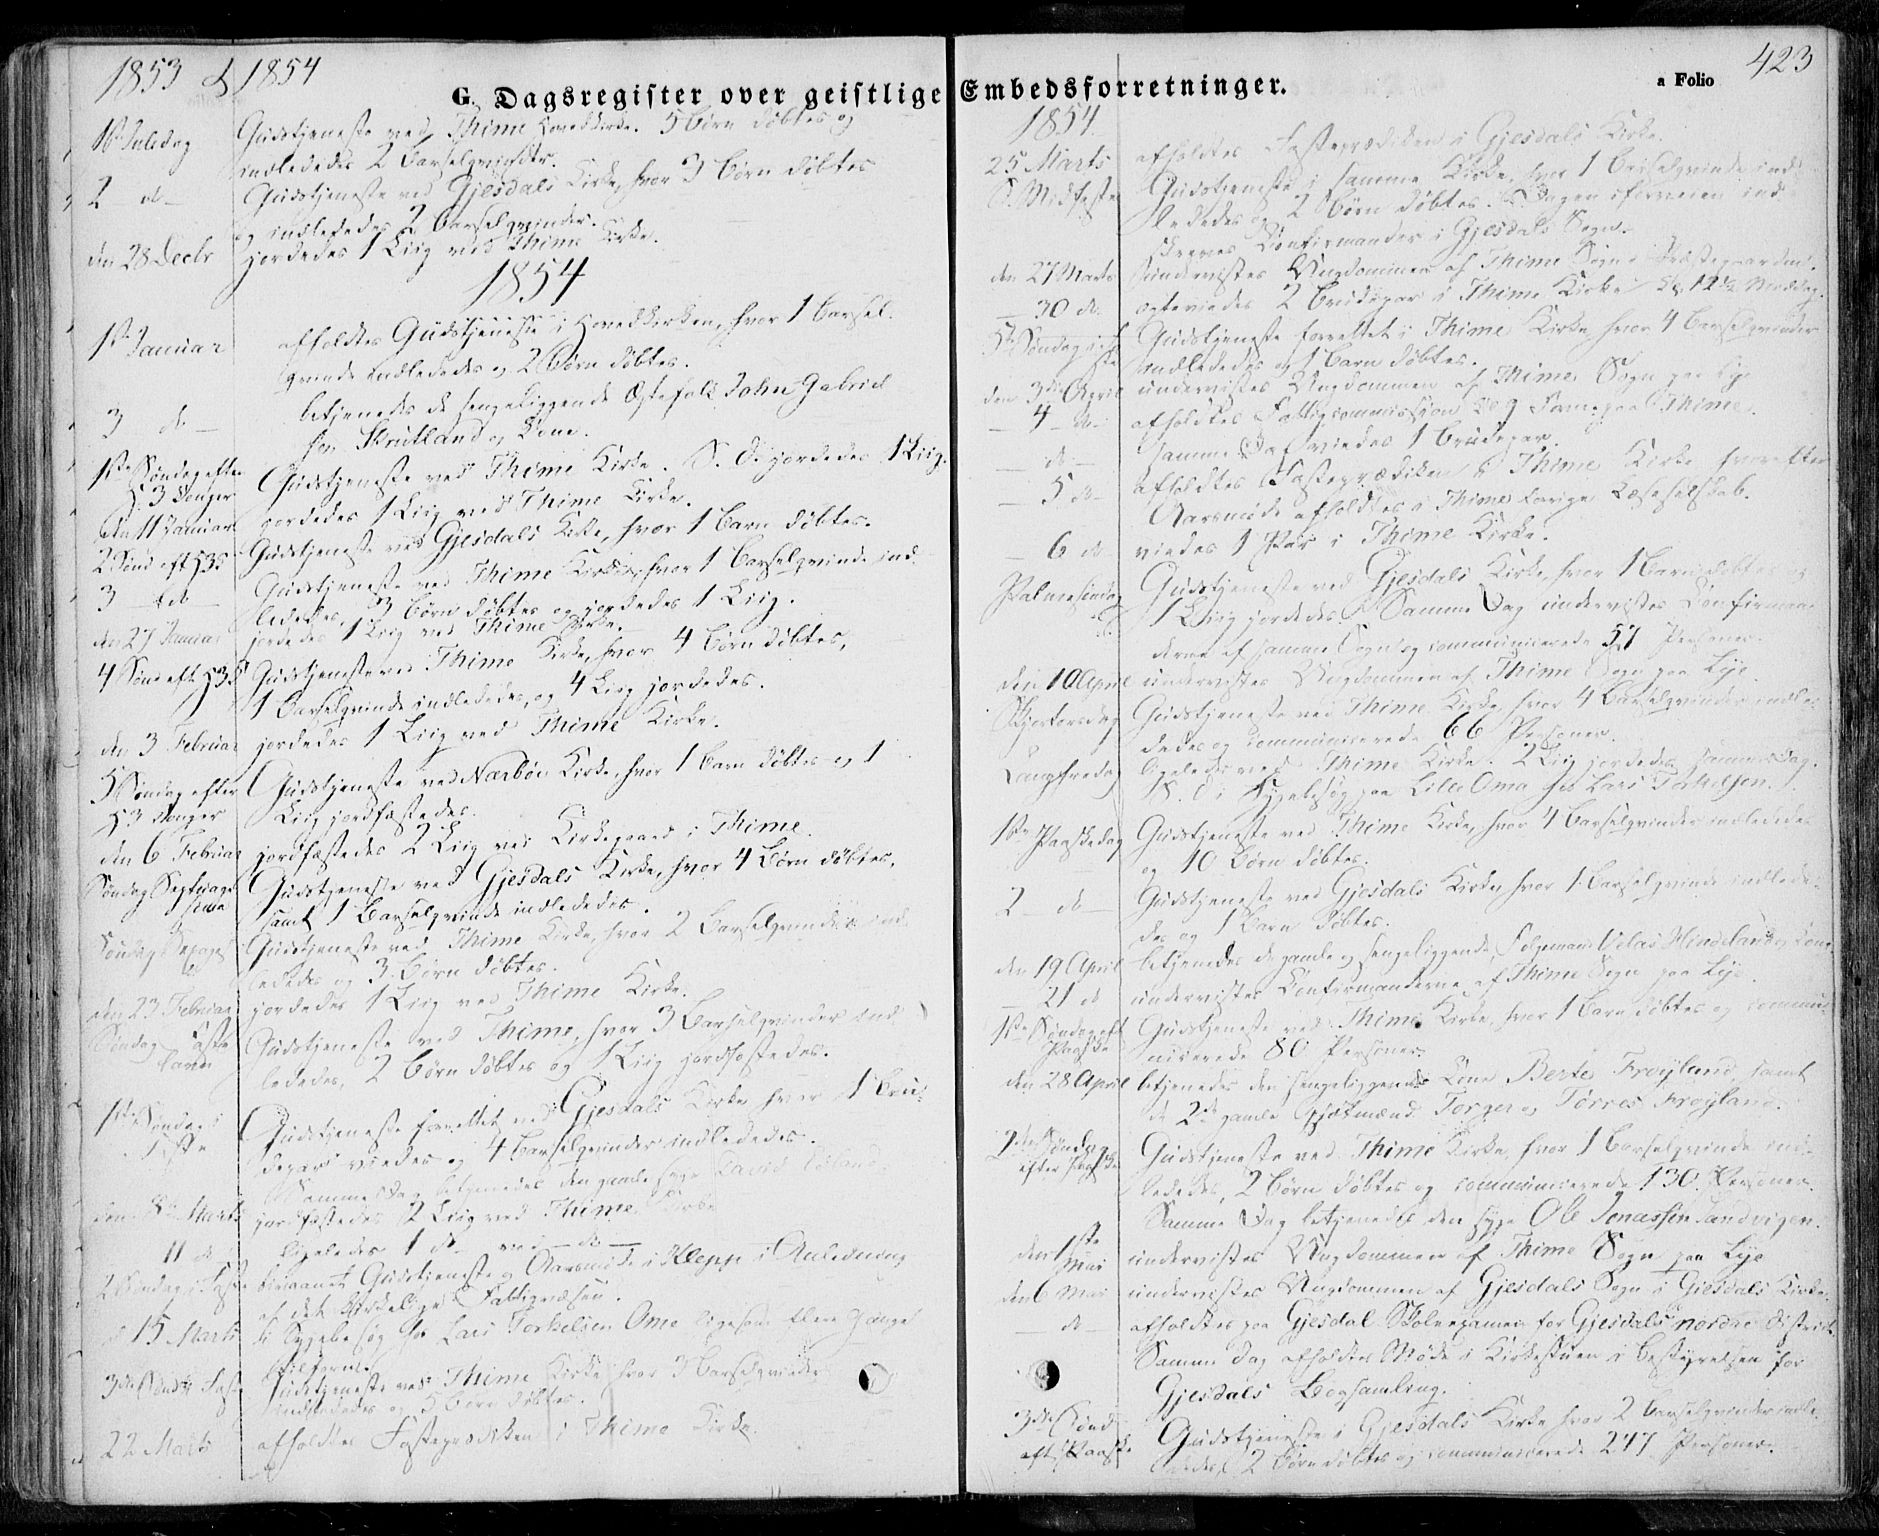 1853 & 1854
G. Dagsregister over geistlige Embedsforretninger.
a Folio
423
1ste Juledag Gudstjeneste ved Thime Hovedkirke. 5 Børn døbtes og
indlededes 2 Barselqvinder.
2 d Gudstjeneste ved Gjesdals Kirke, hvor 3 Børn døbtes
og indlededes 2 Barselqvinder.
den 28 Decbr jordedes 1 Liig ved Thime Kirke.
1854
1ste Januar afholdtes Gudstjeneste i Hovedkirken, hvor 1 Barsel-
qvinde indlededes og 2 Børn døbtes.
3 d betjenedes de sengeliggende Ægtefolk John Gabriel
sen Skrudland og Kone.
1ste Søndag efter Gudstjeneste ved Thime Kirke. S. D. jordedes 1 Liig.
H 3 Konger
den 11 Januar jordedes 1 Liig ved Thime Kirke.
2 Sønd eft H 3 K Gudstjeneste ved Gjesdals Kirke, hvor 1 Barn døbtes.
3 d Gudstjeneste ved Thime Kirke, hvor 1 Barselqvinde ind-
lededes, 3 Børn døbtes og jordedes 1 Liig.
den 27 Januar jordedes 1 Liig ved Thime Kirke.
4 Sønd eft H 3 K Gudstjeneste ved Thime Kirke, hvor 4 Børn døbtes,
1 Barselqvinde indlededes, og 4 Liig jordedes.
den 3 Februar jordedes 1 Liig ved Thime Kirke.
5 Søndag efter Gudstjeneste ved Nærbøe Kirke, hvor 1 Barn døbtes og 1
H 3 Konger Liig jordfæstedes.
den 6 Februar jordfæstedes 2 Liig ved Kirkegaard i Thime.
Søndag Septuage Gudstjeneste ved Gjesdals Kirke, hvor 4 Børn døbtes,
sima samt 1 Barselqvinde indlededes.
Søndag Sexages Gudstjeneste ved Thime Kirke, hvor 2 Barselqvinder ind-
lededes og 3 Børn døbtes.
den 23 Februar jordedes 1 Liig ved Thime Kirke.
Søndag Faste Gudstjeneste ved Thime, hvor 3 Barselqvinder ind-
lavn lededes, 2 Børn døbtes og 1 Liig jordfæstedes.
1ste Søndag i Gudstjeneste forrettet ved Gjesdals Kirke hvor 1 Bru-
Faste depar viedes og 4 Barselqvinder indlededes.
Samme Dag betjenedes den gamle syge David
den 8de Marts jordfæstedes 2 Liig ved Thime Kirke
11 d ligeledes 1 d ved d
2 Søndag i Faste Gudstjeneste og Aarsmøde i Klepp i Anledning
af det kirkelige Fattigvæsen.
d 15 Marts Sygebesøg hos Lars Torkelsen Omo ligesom flere Gange
tilforn.
3die Sønd i Faste Gudstjeneste ved Thime Kirke hvor 3 Barselqvinder
indlededes og 5 Børn døbtes.
22 Marts afholdtes Fasteprædiken i Thime Kirke.
1854.
25 Marts afholdtes Fasteprædiken i Gjesdals Kirke.
S. Midfaste Gudstjeneste i samme Kirke, hvor 1 Barselqvinde ind-
lededes og 2 Børn døbtes. Dagen iforveien ind-
skreves Confirmander i Gjesdals Sogn.
den 27 Marts undervistes Ungdommen af Thime Sogn i Præstegaarden.
30 d. ægteviedes 2 Brudepar i Thime Kirke Kl. 12½ Middag.
5te Søndag i Fa Gudstjeneste forrettet i Thime Kirke, hvor 4 Barselqvinder
ste indlededes og 1 Barn døbtes.
den 3die April undervistes Ungdommen af Thime Sogn paa Lye
4 d afholdtes Fattigcommission Kl 9 Form paa Thime.
d Samme Dag viedes 1 Brudepar.
5 d afholdtes Fasteprædiken i Thime Kirke hvorefter
Aarsmøde afholdtes i Thimes Læseselskab.
6 d viedes 1 Par i Thime Kirke.
Palmesøndag Gudstjeneste ved Gjesdals Kirke, hvor 1 Barn døbtes og
1 Liig jordedes. Samme Dag undervistes Confirman-
derne af samme Sogn og communicerede 57 Personer.
den 10 April undervistes Ungdommen af Thime Sogn paa Lye
Skjertorsdag Gudstjeneste ved Thime Kirke, hvor 4 Barselqvinder indle-
dedes og communicerede 66 Personer.
Langfredag ligeledes ved Thime Kirke. 2 Liig jordedes samme Dag.
S. D. i Sygebesøg paa Lille Oma hos Lars Torkelsen.
1ste Paaskedag Gudstjeneste ved Thime Kirke, hvor 4 Barselqvinder indlededes
og 10 Børn døbtes.
2 d Gudstjeneste ved Gjesdals Kirke, hvor 1 Barselqvinde indlede-
des og 1 Barn døbtes.
den 19 April betjenedes de gamle og sengeliggende Folgemand Velas Hindeland og Kone
21 d undervistes Confirmanderne af Thime Sogn paa Lye.
1ste Søndag eft Gudstjeneste ved Thime Kirke, hvor 1 Barn døbtes og commu-
Paaske nicerede 80 Personer.
den 28 April betjenedes den sengeliggende Kone Berte Frøyland, samt
de 2de gamle Torger og Tørres Frøyland.
2den Søndag Gudstjeneste ved Thime Kirke, hvor 1 Barselqvinde ind-
efter Paaske lededes, 2 Børn døbtes og communicerede 130 Personer.
Samme Dag betjenedes den syge Ole Jonassen Sandvigen.
den 1ste Mai undervistes Ungdommen af Thime Sogn paa Lye
den 6 Mai undervistes Ungdommen af Gjesdals Sogn i Gjesdals Kirke.
d afholdtes paa Gjesdal Skoleexamen for Gjesdals nordre District.
Samme Dag afholdtes Møde i Kirkestuen i Bestyrelsen for
Gjesdals Bogsamling.
3die Sønd Gudstjeneste i Gjesdals Kirke hvor 2 Barselqvinder indle-
eft Paaske dedes, 2 Børn døbtes og communicerede 247 Personer.